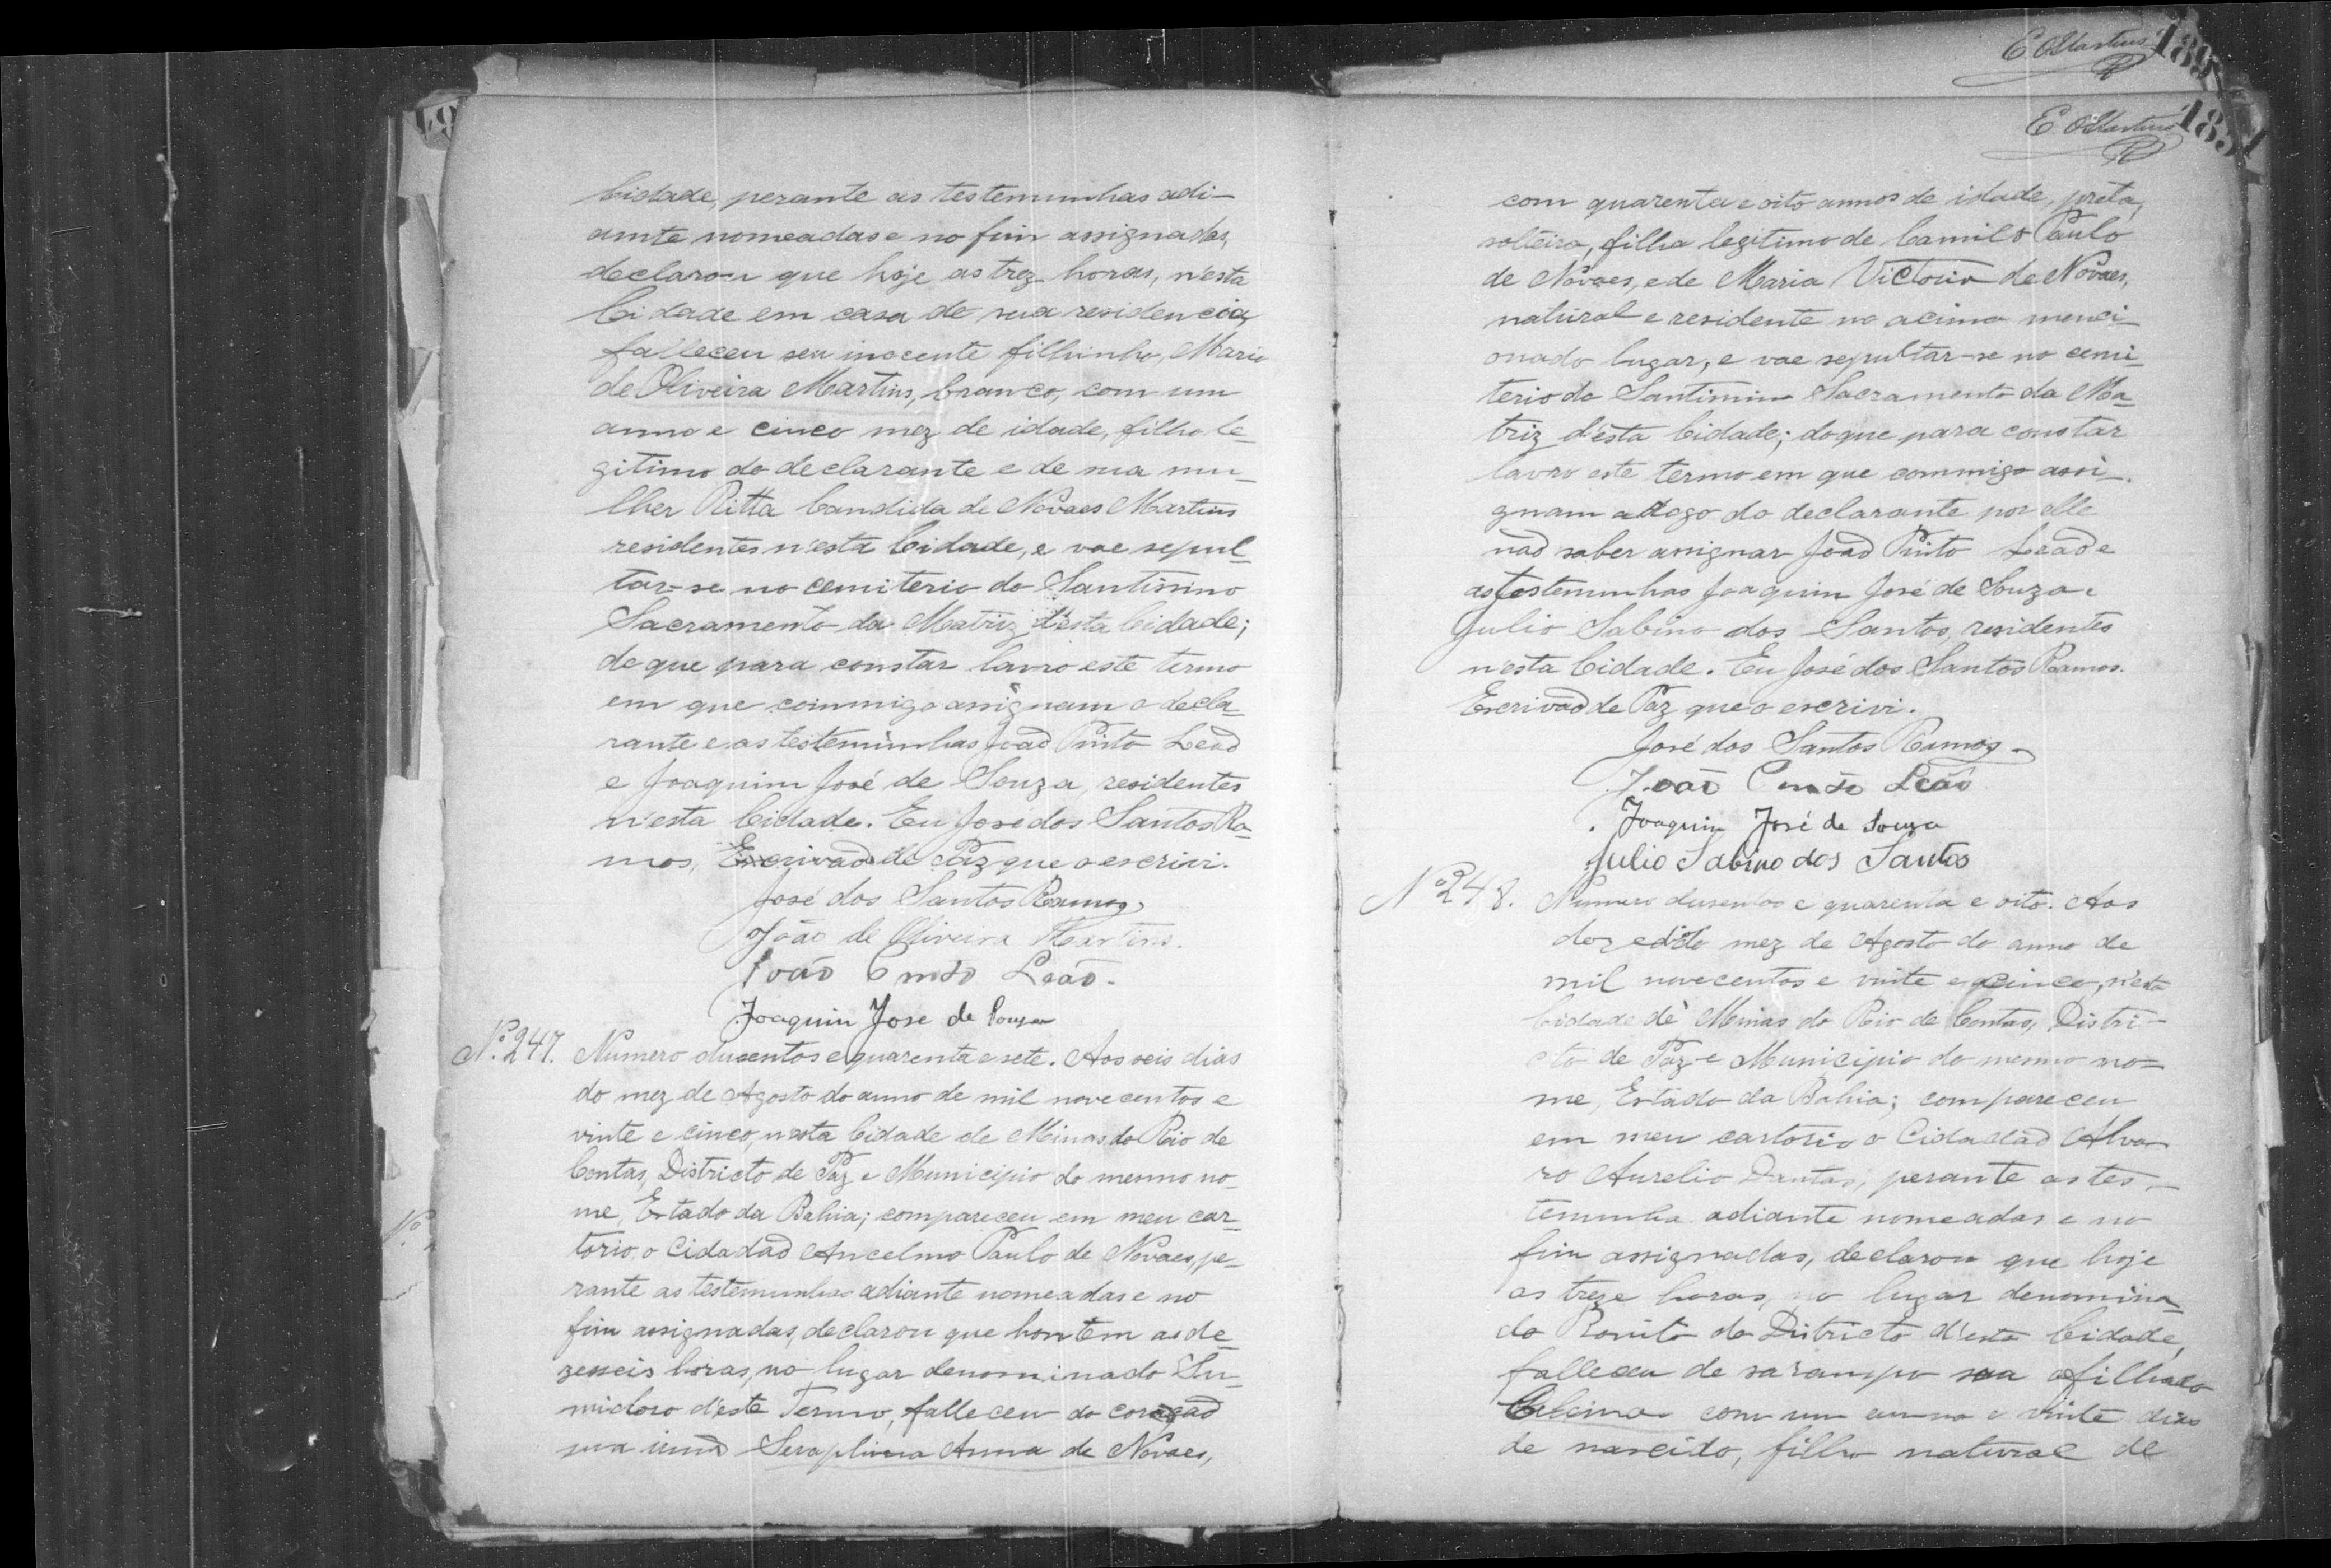 Cidade, perante as testemunhas adi-
ante nomeadas e no fim assignadas,
declarou que hoje as trez horas, n'esta
Cidade em casa de sua residencia,
falleceu seu inocente filhinho, Mario
de Oliveira Martins, branco, com um
anno e cinco mez de idade, filho le-
gitimo do declarante e de sua mu-
lher Ritta Candida de Novaes Martins
residentes n'esta Cidade, e vae sepul-
tar-se no cemiterio do Santissimo
Sacramento da Matriz d'esta Cidade;
do que para constar lavro este termo
em que commigo assignam o decla-
rante e as testemunhas João Pinto Leão
e Joaquim José de Souza, residentes
n'esta Cidade. Eu José dos Santos Ra-
mos, Escrivão de Paz que o escrivi.
José dos Santos Ramos,
João de Oliveira Martins.
João Pinto Leão.
Joaquim Jose de Souza
Nº. 247. Numero dusentos e quarenta e sete. Aos seis dias
do mez de Agosto do anno de mil novecentos e
vinte e cinco, n'esta Cidade de Minas do Rio de
Contas, Districto de Paz e Municipio do mesmo no-
me, Estado da Bahia; compareceu em meu car-
torio o Cidadão Ancelmo Paulo de Novaes, pe-
rante as testemunhas adiante nomeadas e no
fim assignadas, declarou que hontem as de-
zesseis horas, no lugar denominado Su-
midoro d'este Termo, falleceu do coração
sua irmã Seraphina Anna de Novaes,
Nº
E. Martins
189
E. Martins
com quarenta e oito annos de idade, preta,
solteira, filha legitimo de Camilo Paulo
de Novaes, e de Maria Victoria de Novaes,
natural e residente no acima menci-
onado lugar, e vae sepultar-se no cemi-
terio do Santimim Sacramento da Ma-
triz d'esta Cidade; do que para constar
lavro este termo em que commigo assi-
gnam a rogo do declarante por elle
não saber assignar João Pinto Leão e
as testemunhas Joaquim José de Souza e
Julio Sabino dos Santos, residentes
n'esta Cidade. Eu José dos Santos Ramos.
Escrivão de Paz que o escrivi.
José dos Santos Ramos.
João Pinto Leão
Joaquim José de Souza
Julio Sabino dos Santos
Nº 248. Numero dusentos e quarenta e oito. Aos
do mez de Agosto do anno de
mil novecentos e vinte e cinco, n'esta
Cidade de Minas do Rio de Contas, Distri-
cto de Paz e Municipio do mesmo no-
me, Estado da Bahia; compareceu
em meu cartorio o Cidadão Alva-
ro Aurelio Dantas, perante as tes-
temunha adiante nomeadas e no
fim assignadas, declarou que hoje
as treze horas, no lugar denomina-
do Bonito do Districto d'esta Cidade,
falleceu de sarampo sua afilhado
com um anno e vinte dias
de nascido, filho natural de